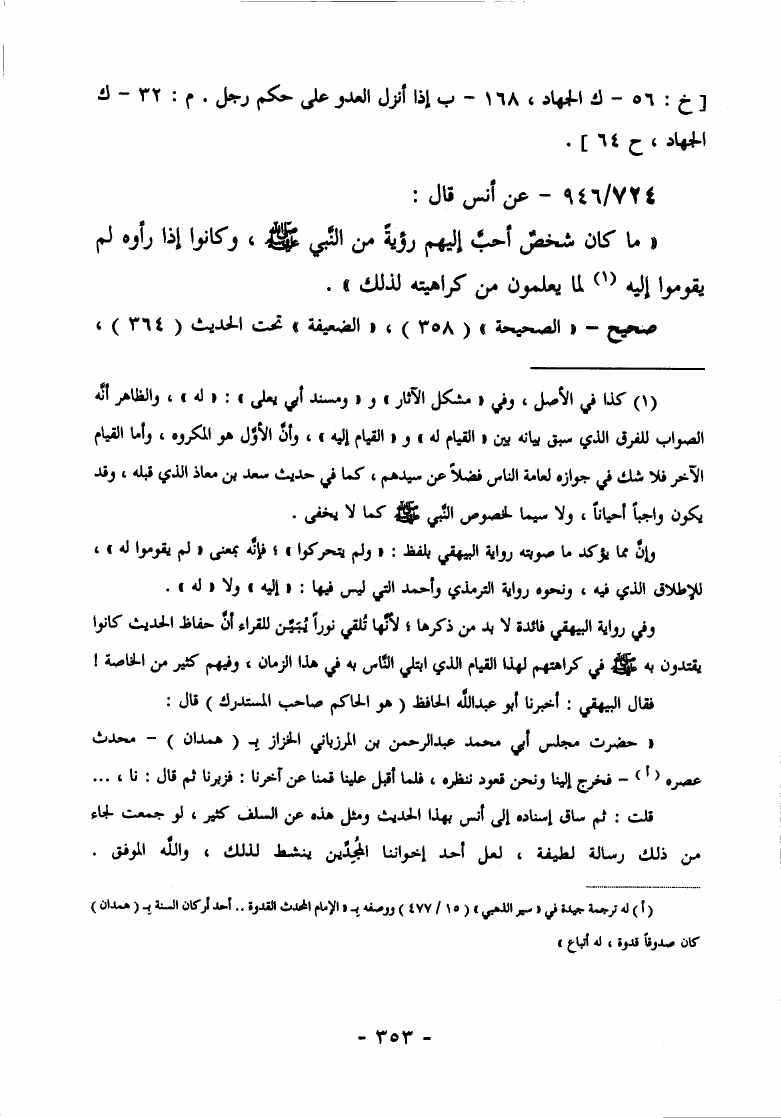 [ خ : ٥٦ – ك الجهاد ، ١٦٨ – ب إذا أنزل العدو على حكم رجل . م : ٣٢ – ك
الجهاد ، ح ٦٤ ] .
٩٤٦/٧٢٤ – عن أنس قال :
« ما كان شخصٌ أحبَّ إليهم رؤيةً من النَّبي ﷺ ، وكانوا إذا رأوه لم
يقوموا إليه (١) لما يعلمون من كراهيته لذلك » .
صحيح – « الصحيحة » ( ٣٥٨ ) ، « الضعيفة » تحت الحديث ( ٣٤٦ ) ،
(١) كذا في الأصل ، وفي « مشكل الآثار » و « ومسند أبي يعلى » : « له » ، والظاهر أنَّه
الصواب للفرق الذي سبق بيانه بين « القيام له » و « القيام إليه » ، وأنَّ الأوَّل هو المكروه ، وأما القيام
الآخر فلا شك في جوازه لعامة الناس فضلاً عن سيدهم ، كما في حديث سعد بن معاذ الذي قبله ، وقد
يكون واجباً أحياناً ، ولا سيما لخصوص النَّبي ﷺ كما لا يخفى .
وإنَّ مما يؤكد ما صوبته رواية البيهقي بلفظ : « ولم يتحركوا » ؛ فإنَّه بمعنى « لم يقوموا له » ،
للإطلاق الذي فيه ، ونحوه رواية الترمذي وأحمد التي ليس فيها : « إليه » ولا « له » .
وفي رواية البيهقي فائدة لا بد من ذكرها ؛ لأنَّها تُلقي نوراً يُبَيِّن للقراء أنَّ حفاظ الحديث كانوا
يقتدون به ﷺ في كراهتهم لهذا القيام الذي ابتلي النَّاس به في هذا الزمان ، وفيهم كثير من الخاصة !
فقال البيهقي : أخبرنا أبو عبدالله الحافظ ( هو الحاكم صاحب المستدرك ) قال :
« حضرت مجلس أبي محمد عبدالرحمن بن المرزباني الخزاز بـ ( همدان ) – محدث
عصره (أ) – فخرج إلينا ونحن قعود ننظره ، فلما أقبل علينا قمنا عن آخرنا : فزبرنا ثم قال : نا ، ...
قلت : ثم ساق إسناده إلى أنس بهذا الحديث ومثل هذه عن السلف كثير ، لو جمعت لجاء
من ذلك رسالة لطيفة ، لعل أحد إخواننا المُجِدِّين ينشط لذلك ، والله الموفق .
(أ) له ترجمة جيدة في « سير الذهبي » ( ١٥ / ٤٧٧ ) ووصفه بـ « الإمام المحدث القدوة .. أحد أركان السنة بـ ( همدان )
كان صدوقاً قدوة ، له أتباع »
- ٣٥٣ -